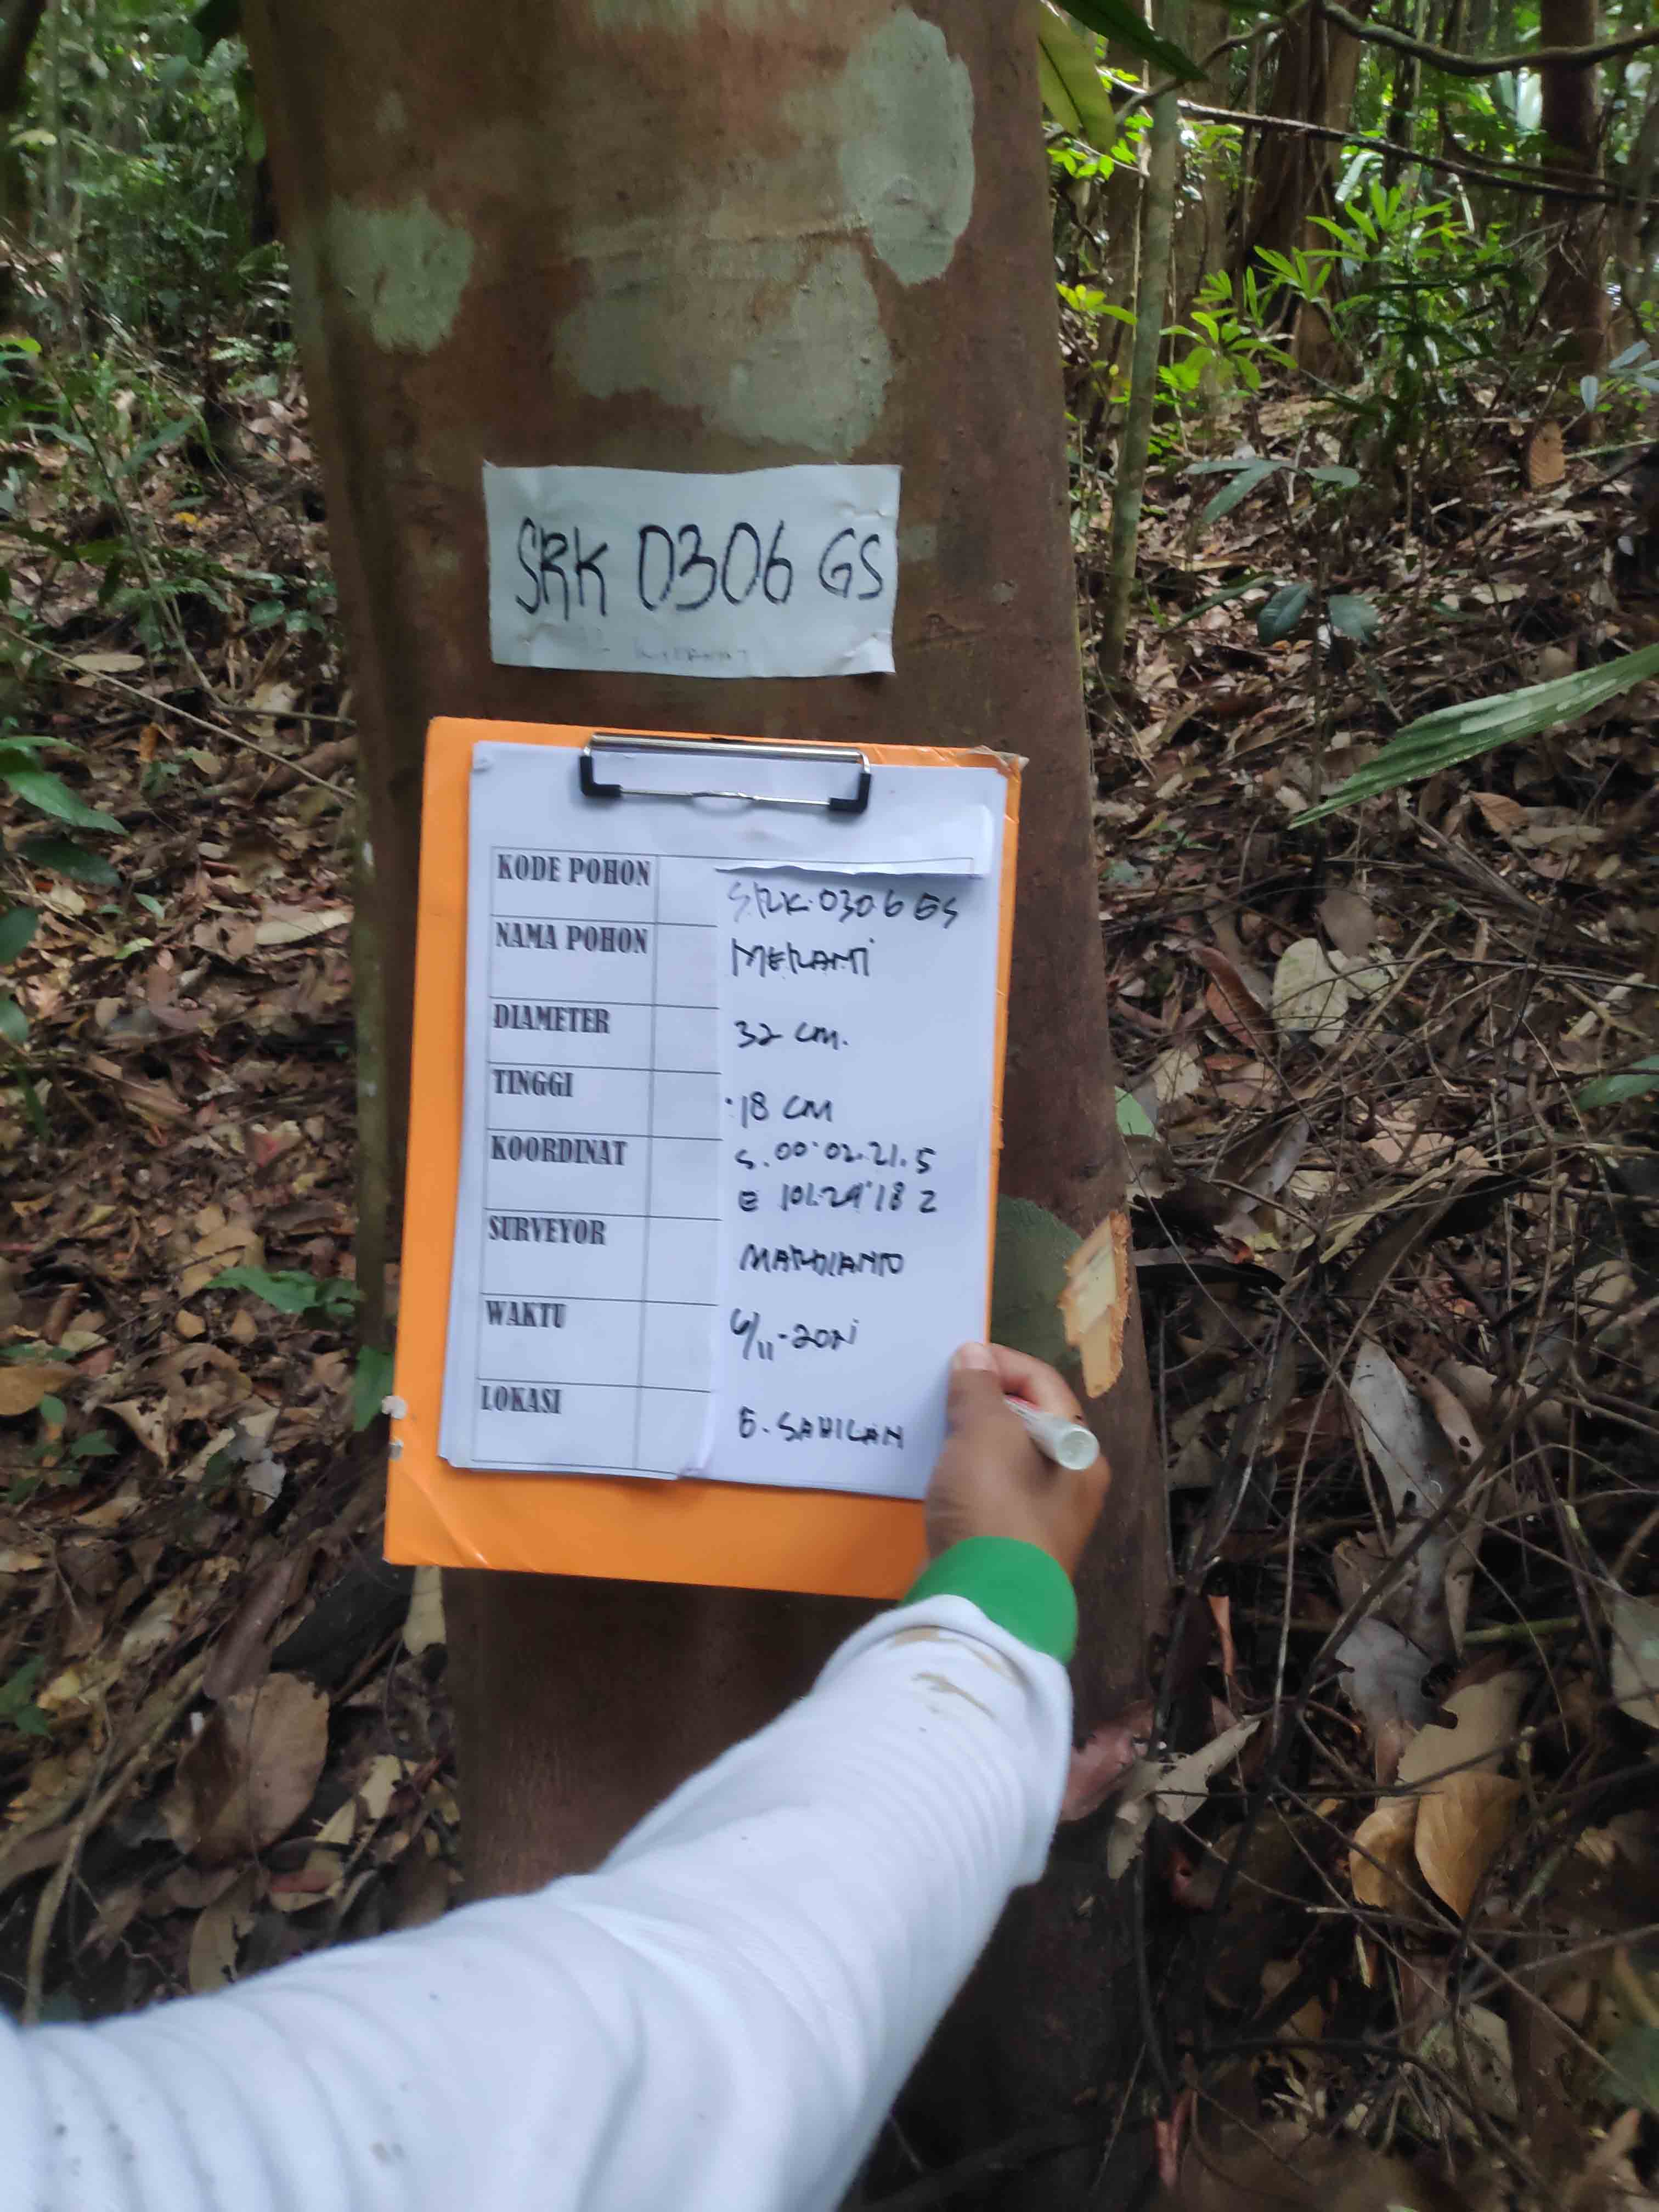 SRK 0306 GS
KODE POHON SRK.0306 GS
NAMA POHON MERANTI
DIAMETER 32 cm.
TINGGI 18 CM
KOORDINAT S. 00°02.21.5
E 101.29'18 2
SURVEYOR MARDIANTO
WAKTU 6/11-2021
LOKASI G. SAHILAN